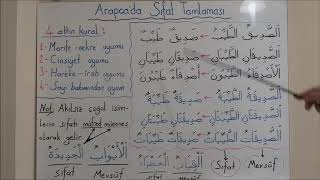 Arapçada Sıfat Tamlaması
4 altın kural:
1- Marife-nekre uyumu
2- Cinsiyet uyumu
3- Hareke-irab uyumu
4- Sayı bakımından uyum
Not: Akılsız çoğul isim-
lerin sıfatı müfred müennes
olarak gelir.
اَلْأَبْوَابُ الْجَدِيدَةُ
Mevsûf Sıfat
اَلصَّدِيقُ الطَّيِّبُ ← صَدِيقٌ طَيِّبٌ
اَلصَّدِيقَانِ الطَّيِّبَانِ ← صَدِيقَانِ طَيِّبَانِ
اَلْأَصْدِقَاءُ الطَّيِّبُونَ ← أَصْدِقَاءُ طَيِّبُونَ
اَلصَّدِيقَةُ الطَّيِّبَةُ ← صَدِيقَةٌ طَيِّبَةٌ
اَلصَّدِيقَتَانِ الطَّيِّبَتَانِ ← صَدِيقَتَانِ طَيِّبَتَانِ
اَلصَّدِيقَاتُ الطَّيِّبَاتُ ← صَدِيقَاتٌ طَيِّبَاتٌ
Sıfat Mevsûf